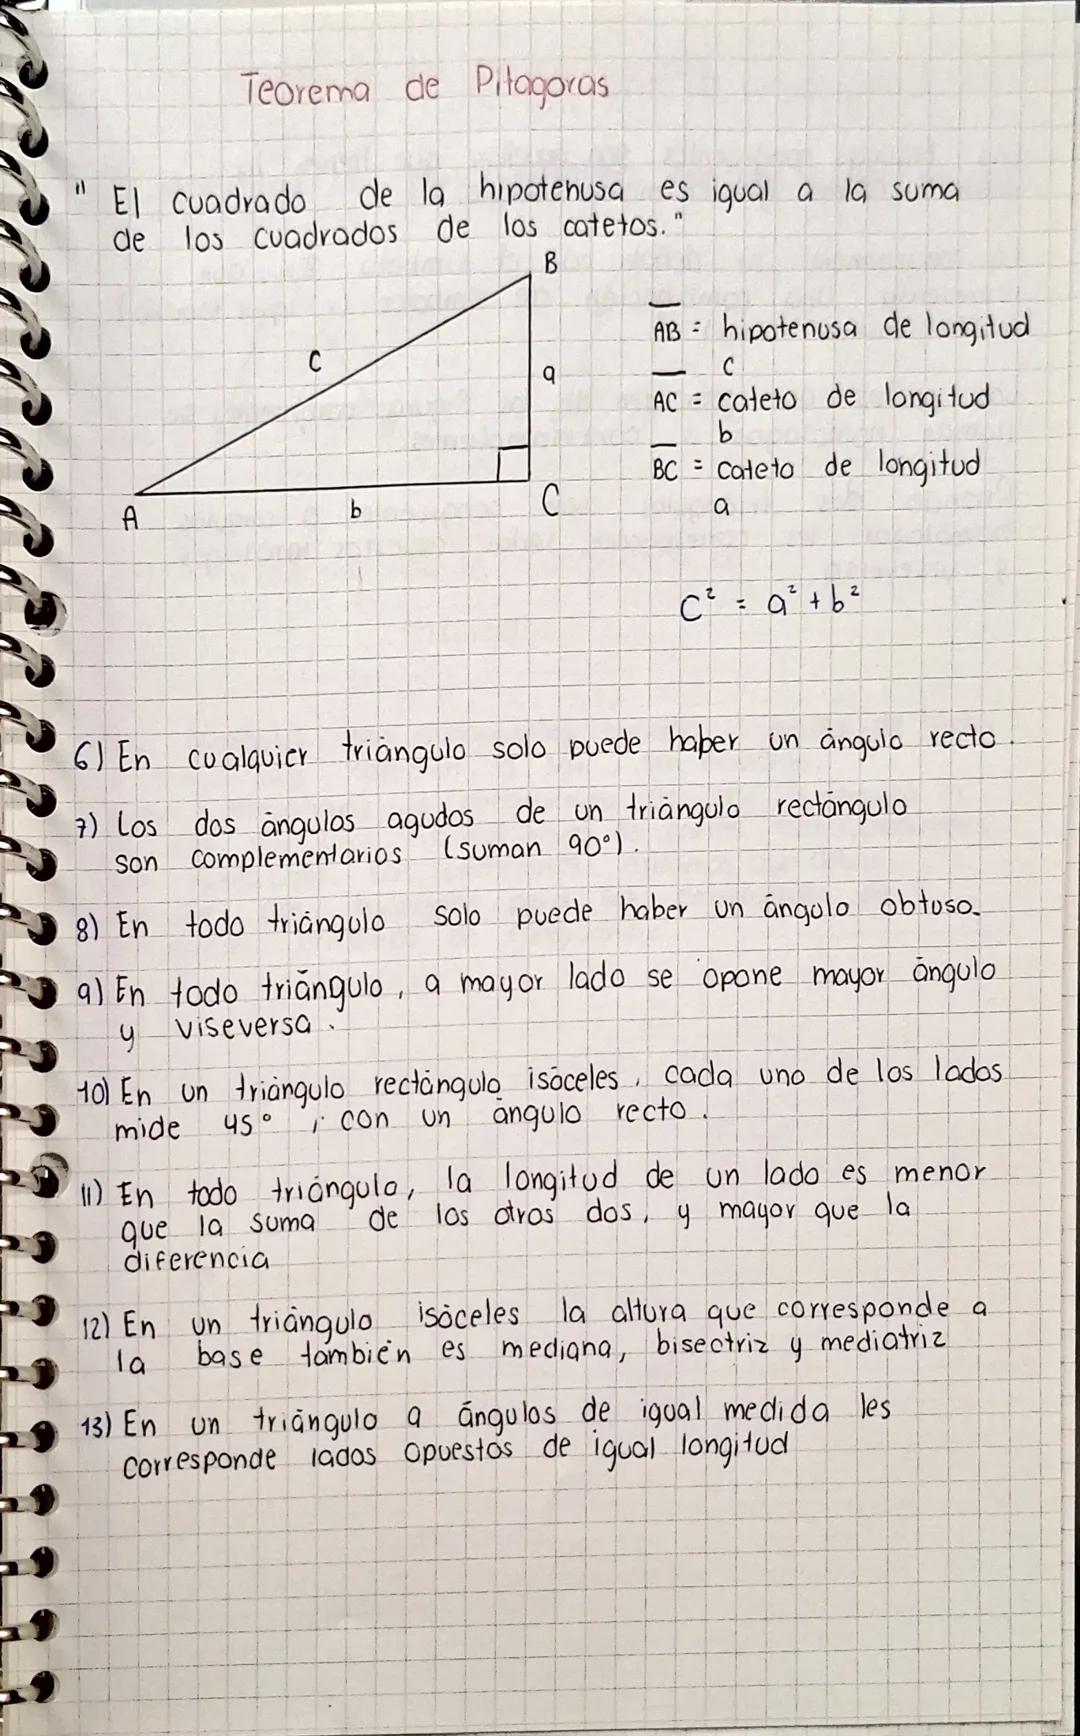 Teorema de Pitagoras
" El cuadrado de la hipotenusa es igual a la suma
de los cuadrados de los catetos."
B
c
a
A
b
C
AB = hipotenusa de longitud
c
AC = cateto de longitud
b
BC = cateto de longitud
a
C² = a² + b²
6) En cualquier triángulo solo puede haber un ángulo recto.
7) Los dos ángulos agudos de un triángulo rectángulo
son complementarios (suman 90°).
8) En todo triángulo solo puede haber un ángulo obtuso.
9) En todo triángulo, a mayor lado se opone mayor ángulo
y viseversa.
10) En un triángulo rectángulo isóceles, cada uno de los lados
mide 45°, con un ángulo recto.
11) En todo triángulo, la longitud de un lado es menor
que la suma de los otros dos, y mayor que la
diferencia
12) En un triángulo isóceles la altura que corresponde a
la base también es mediana, bisectriz y mediatriz
13) En un triángulo a ángulos de igual medida les
corresponde lados opuestos de igual longitud